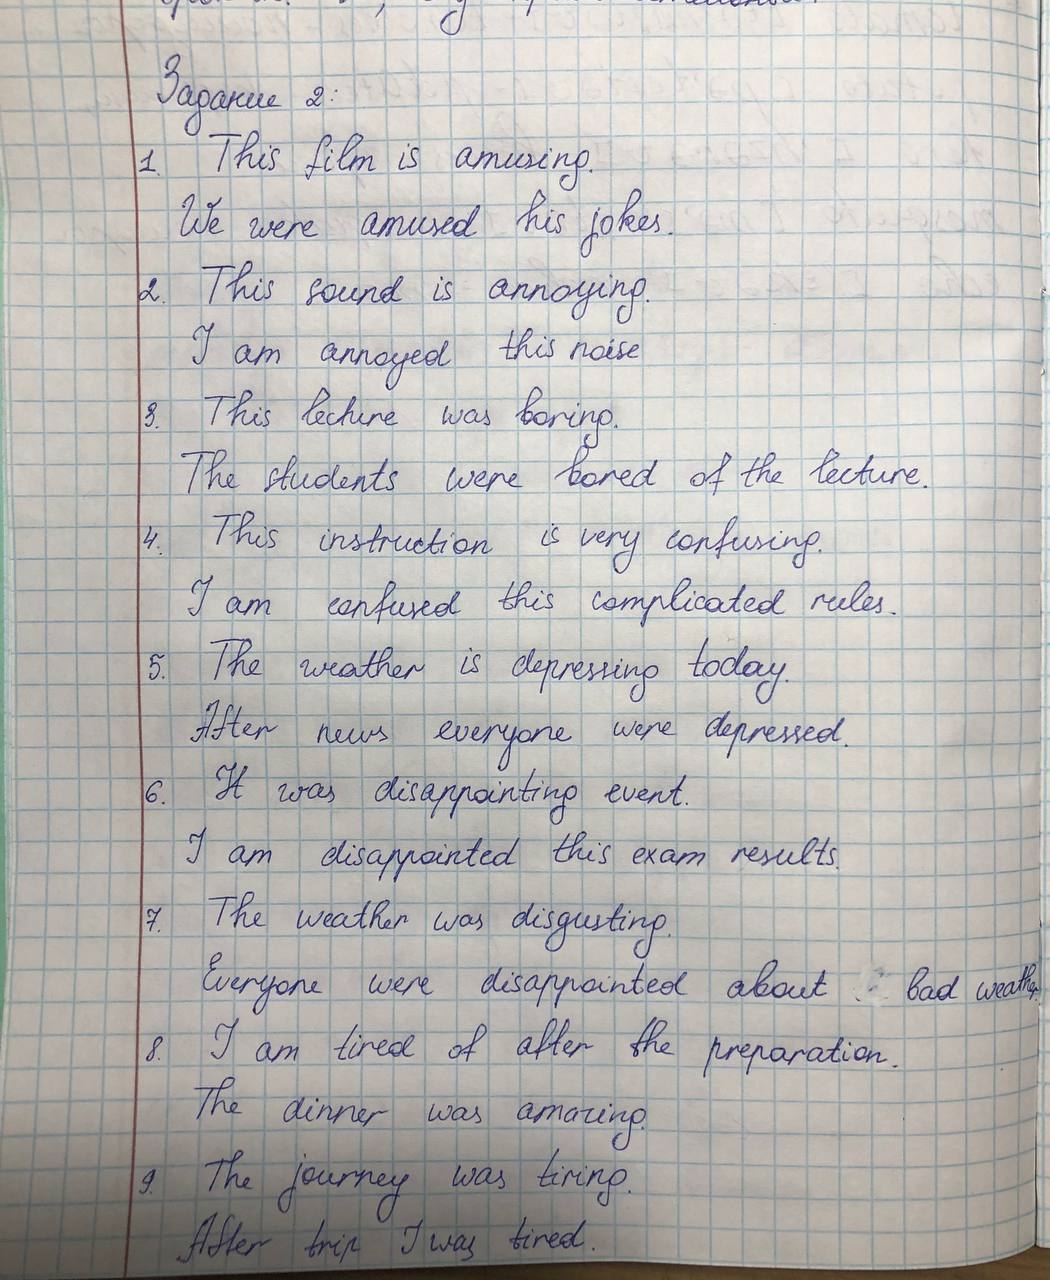 Задание 2:
1. This film is amusing.
We were amused his jokes.
2. This sound is annoying.
I am annoyed this noise
3. This lecture was boring.
The students were bored of the lecture.
4. This instruction is very confusing.
I am confused this complicated rules.
5. The weather is depressing today.
After news everyone were depressed.
6. It was disappointing event.
I am disappointed this exam results.
7. The weather was disgusting.
Everyone were disappointed about bad weather.
8. I am tired of after the preparation.
The dinner was amazing.
9. The journey was tiring.
After trip I was tired.